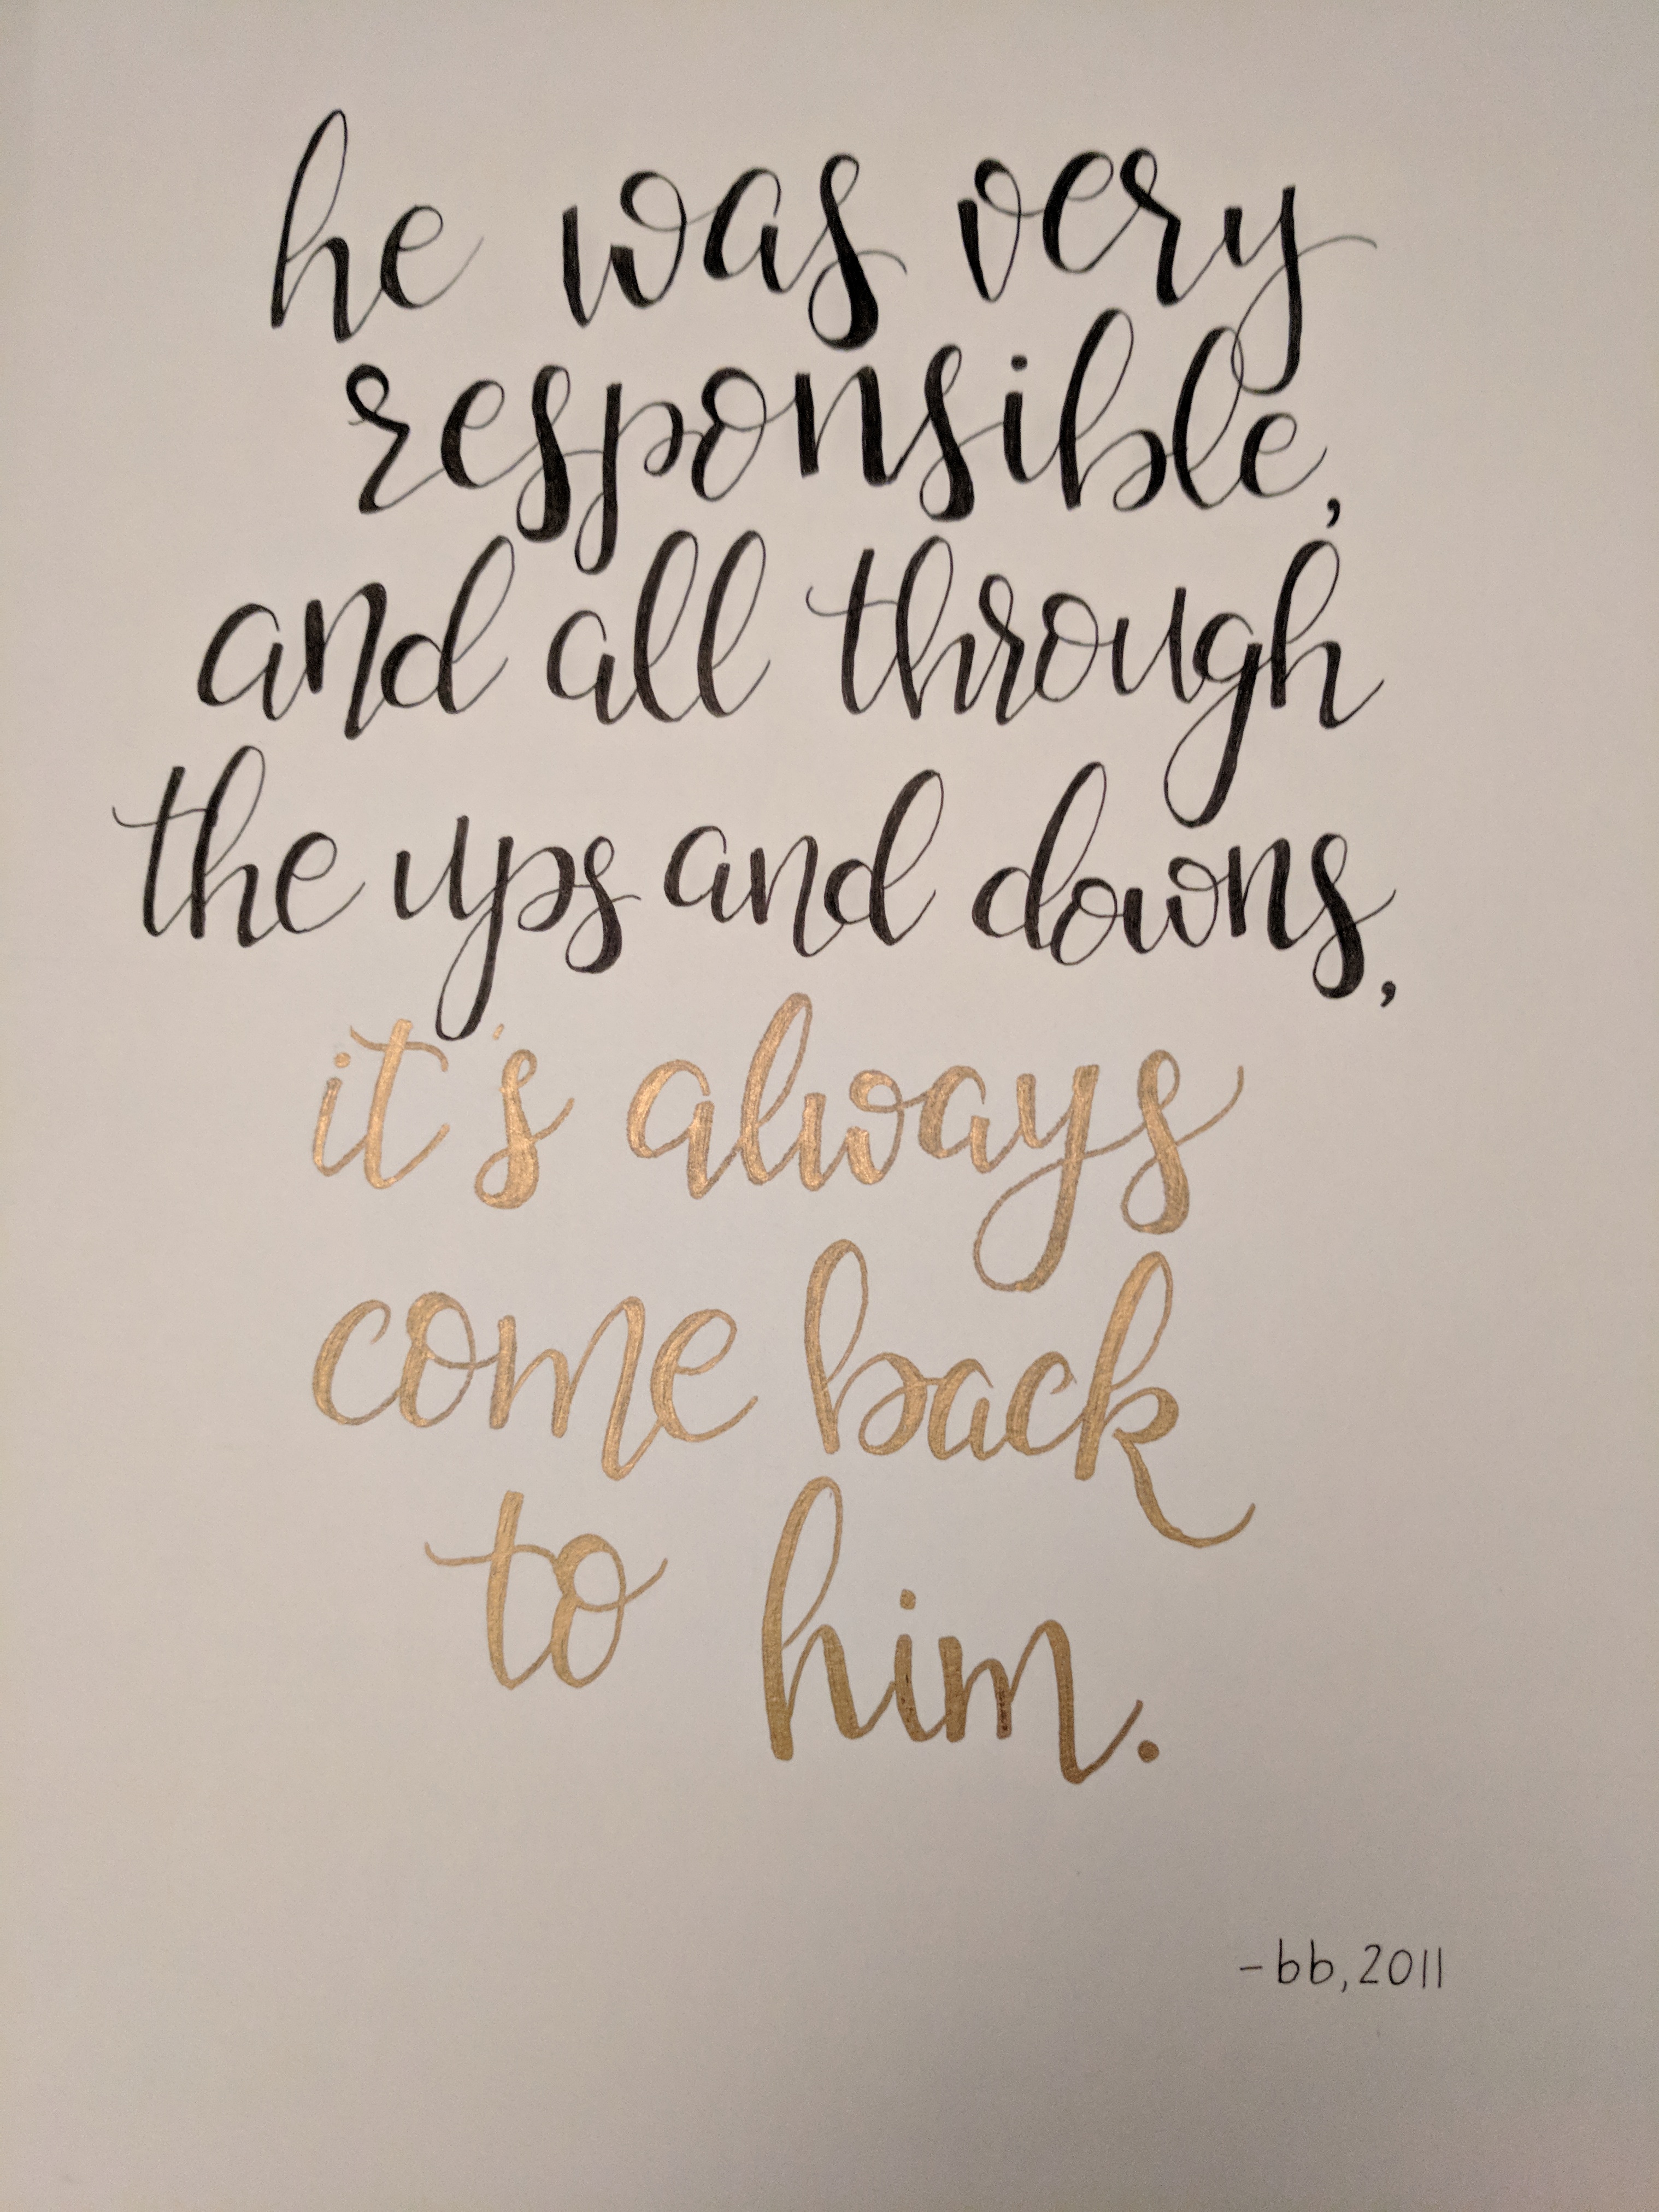 he was very
responsible,
and all through
the ups and downs,
it's always
come back
to him.
-bb, 2011